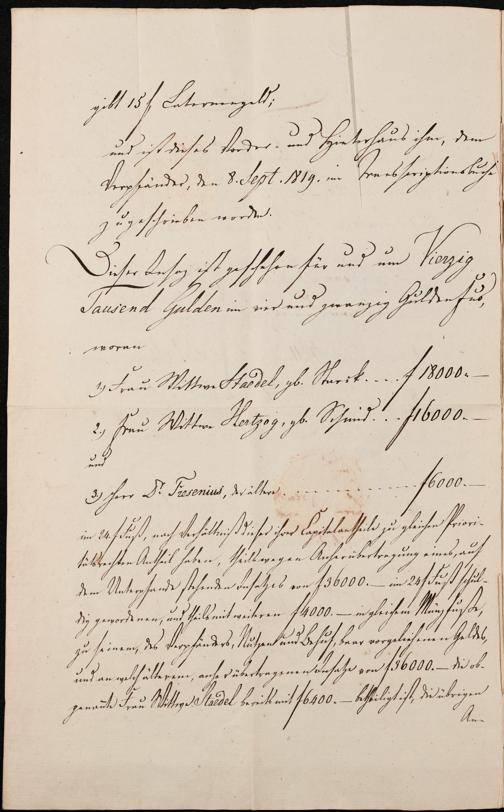 gibt 15 f Laternengeld;
und ist dieses Vorder- und Hinterhaus ihm, dem
Verpfänder, den 8. Sept. 1819. im Transscriptionsbuche
zugeschrieben worden.
Dieser Insaz ist geschehen für und um Vierzig
Tausend Gulden im vier und zwanzig Gulden Fus,
woran
1) Frau Wittwe Staedel, gb. Starck... f 18000.—
2) Frau Wittwe Hertzog, gb. Schmid... f 16000.—
und
3) Herr Dr. Fresenius, der ältere............ f 6000.—
im 24 f Fuß, nach Verhältniß dieser ihrer Capitalantheile, zu gleichen Priori-
tätsrechten Antheil haben, theils wegen Anherübertragung eines, auf
dem Unterpfande stehenden Insatzes von f 36000.— im 24 f Fuß schul-
dig gewordenen, und theils mit weiteren f 4000.— in gleichem Münzfuße,
zu seinem, des Verpfänders, Nutzen und Behuf, baar vorgeliehenen Geldes,
und an welch älterem, anher übertragenen Insatze von f 36000.— die ob-
genannte Frau Wittwe Staedel bereits mit f 6400.— betheiligt ist, die übrigen
An-